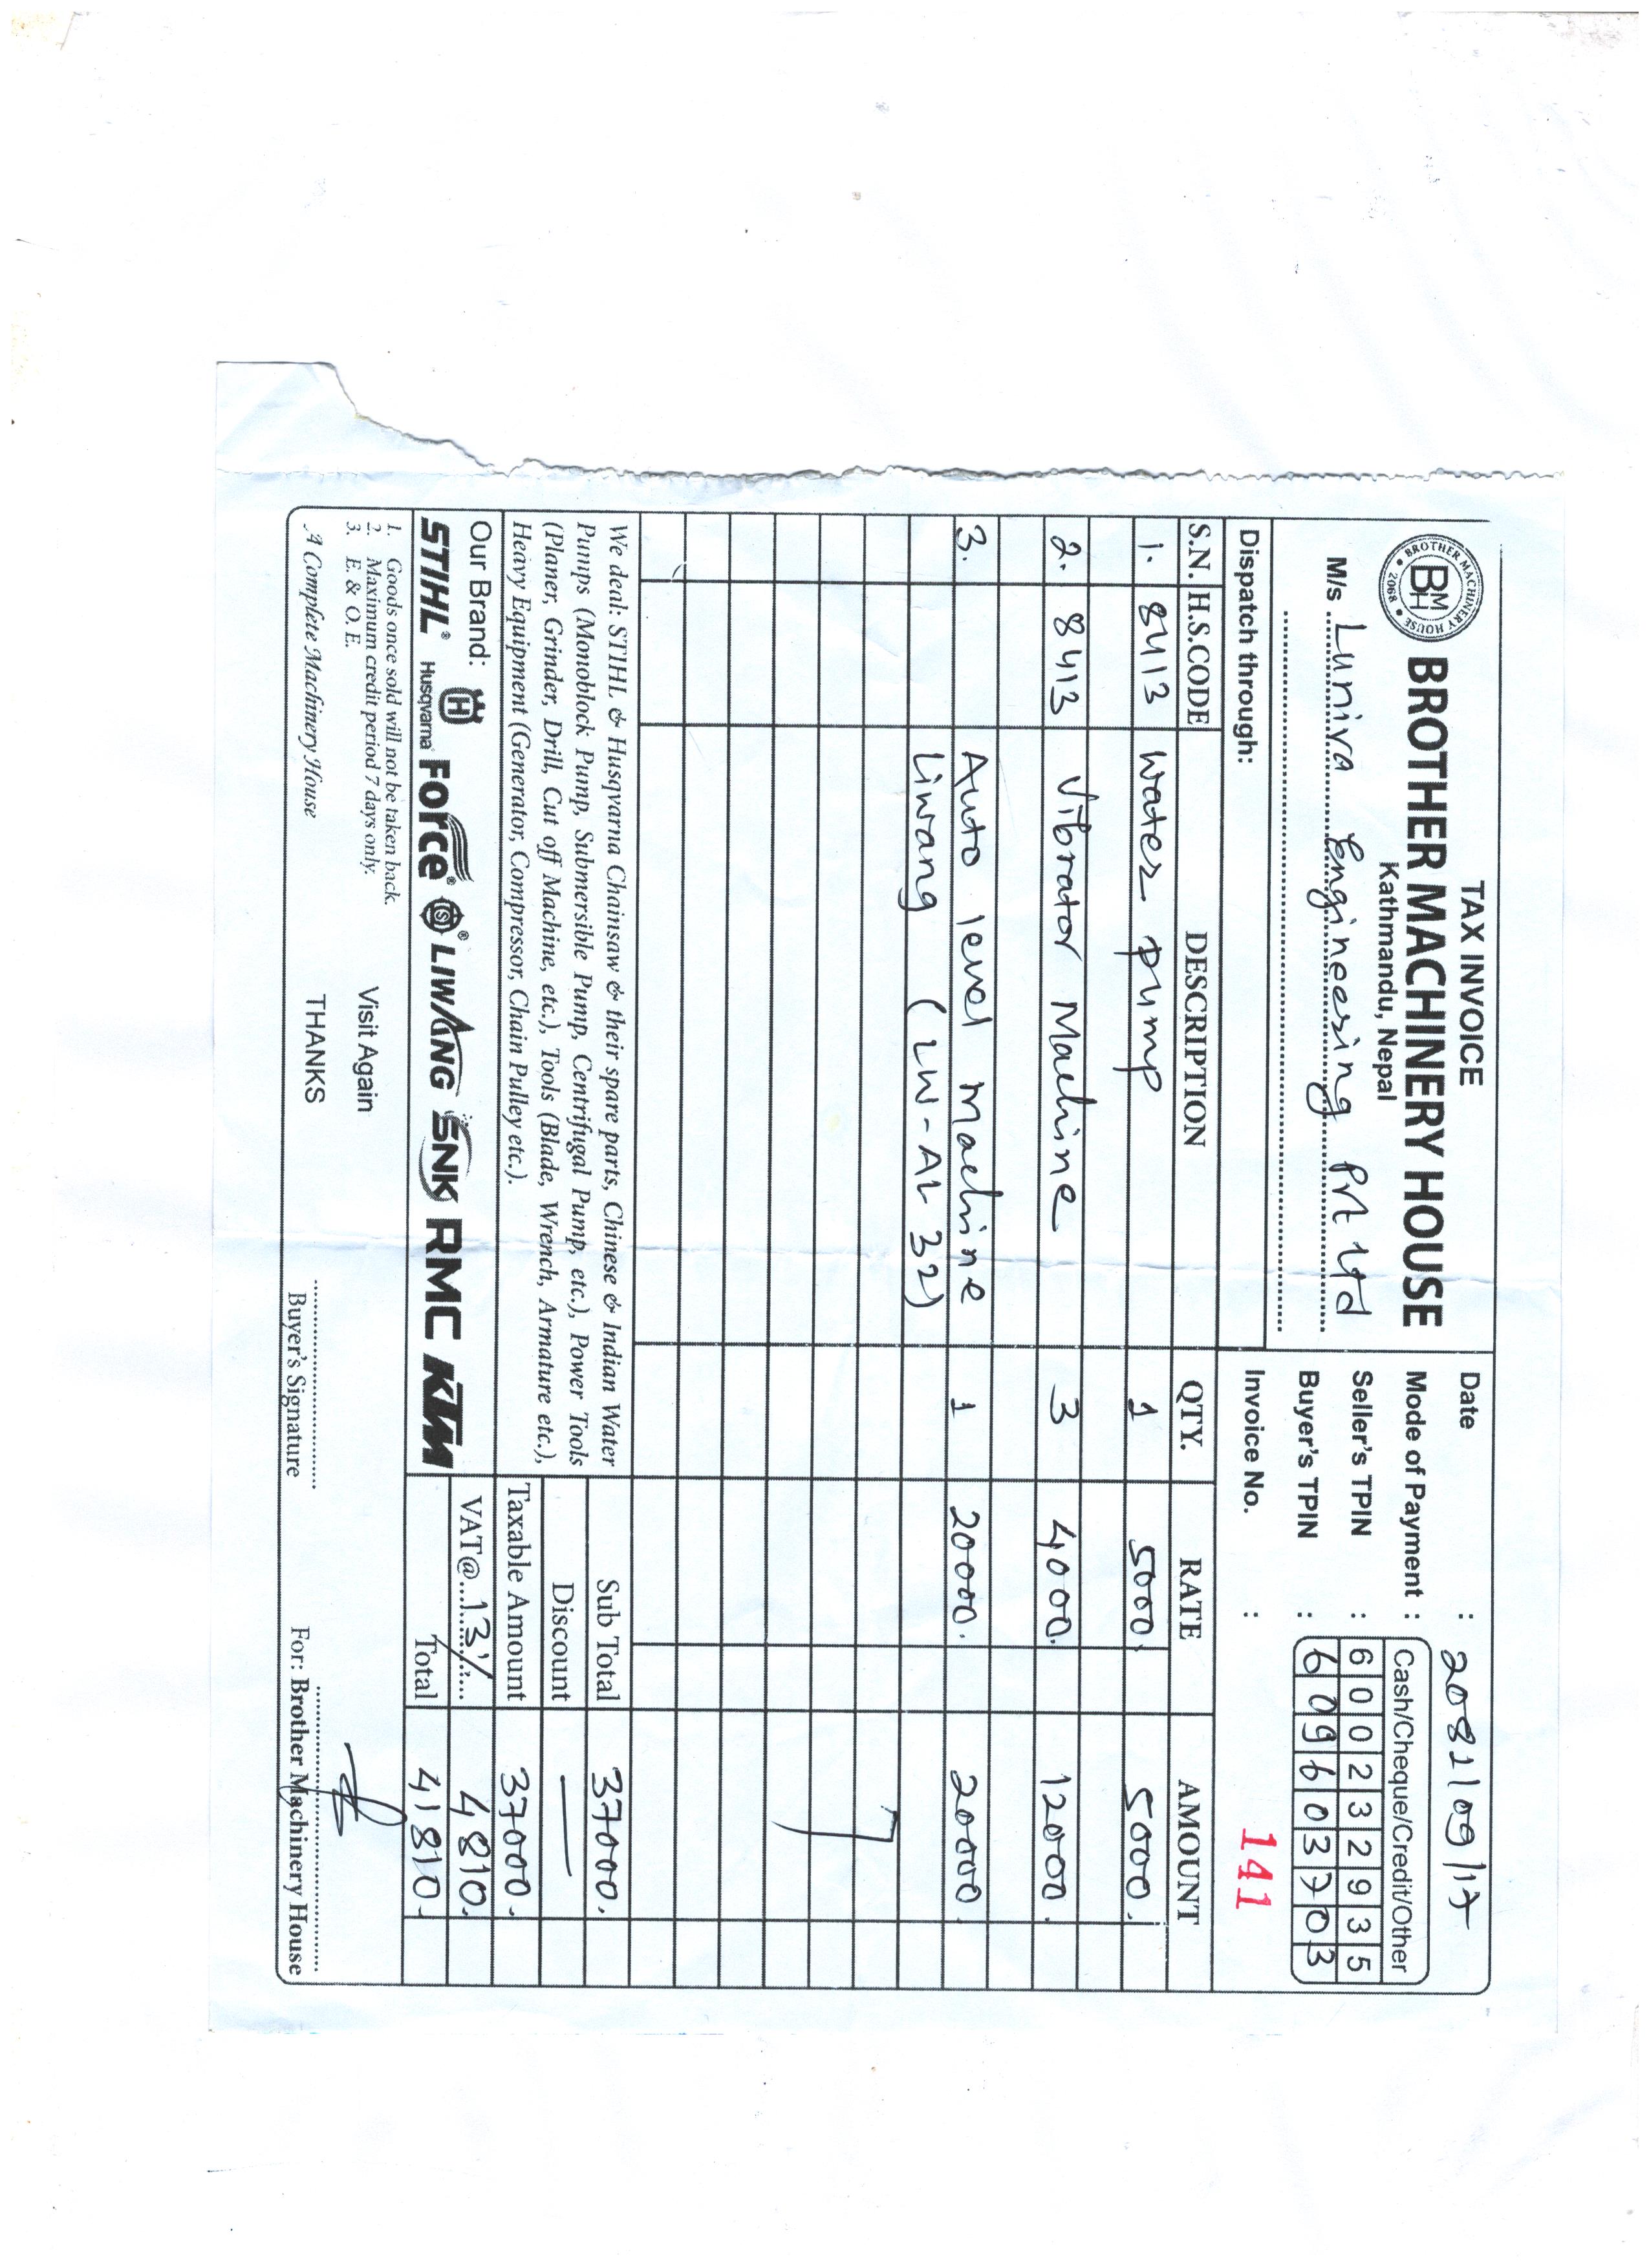 TAX INVOICE
BROTHER MACHINERY HOUSE
Kathmandu, Nepal
BROTHER MACHINERY HOUSE
BMH
2068
M/s Luniva Engineering Pvt Ltd
Dispatch through:
Date : 2081/09/17
Mode of Payment : Cash/Cheque/Credit/Other
Seller's TPIN : 600232935
Buyer's TPIN : 609603703
Invoice No. : 141
S.N. H.S.CODE DESCRIPTION QTY. RATE AMOUNT
1. 8413 Water pump 1 5000. 5000.
2. 8413 Vibrator Machine 3 4000. 12000.
3. Auto level Machine 1 20000. 20000.
Liwang (LW-AL 32)
We deal: STIHL & Husqvarna Chainsaw & their spare parts, Chinese & Indian Water
Pumps (Monoblock Pump, Submersible Pump, Centrifugal Pump, etc.), Power Tools
(Planer, Grinder, Drill, Cut off Machine, etc.), Tools (Blade, Wrench, Armature etc.),
Heavy Equipment (Generator, Compressor, Chain Pulley etc.).
Sub Total 37000.
Discount —
Taxable Amount 37000.
VAT@...13%... 4810.
Total 41810.
Our Brand:
STIHL® Husqvarna Force® LIWANG® SNK RMC KTM
1. Goods once sold will not be taken back.
2. Maximum credit period 7 days only.
3. E. & O. E.
A Complete Machinery House
Visit Again
THANKS
Buyer's Signature
For: Brother Machinery House